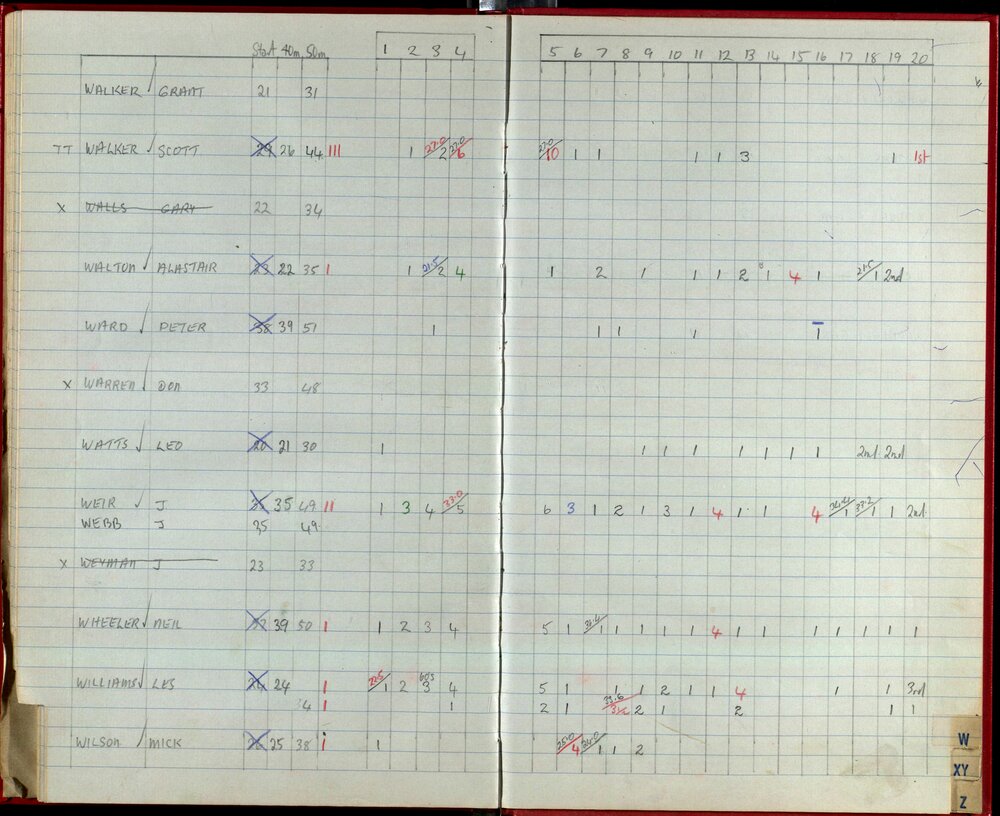 Start 40m 50m 1 2 3 4 5 6 7 8 9 10 11 12 13 14 15 16 17 18 19 20
WALKER GRANT 21 31
TT WALKER SCOTT 26 44 III 1 27.0/2 27.0/6 27.0/10 1 1 1 1 3 1 1st
X WALLS GARY 22 34
WALTON ALASTAIR 23 22 35 I 1 21.5/2 4 1 2 1 1 1 2 1 4 1 21.5/1 2nd
WARD PETER 38 39 51 1 1 1 1 1
X WARREN DON 33 48
WATTS LEO 20 21 30 1 1 1 1 1 1 1 1 2nd 2nd
WEIR J 35 49 II 1 3 4 33.0/5 6 3 1 2 1 3 1 4 1 1 4 1 33.2/1 1 2nd
WEBB J 35 49
X WEYMAN J 23 33
WHEELER NEIL 39 50 I 1 2 3 4 5 1 1 1 1 1 1 4 1 1 1 1 1 1 1
WILLIAMS LES 24 I 22.5/1 2 3 4 5 1 1 1 2 1 1 4 1 1 3rd
34 I 1 2 1 33.6 2 1 2 1 1
WILSON MICK 25 38 I 1 25.0/4 24.0/1 1 2
W
XY
Z